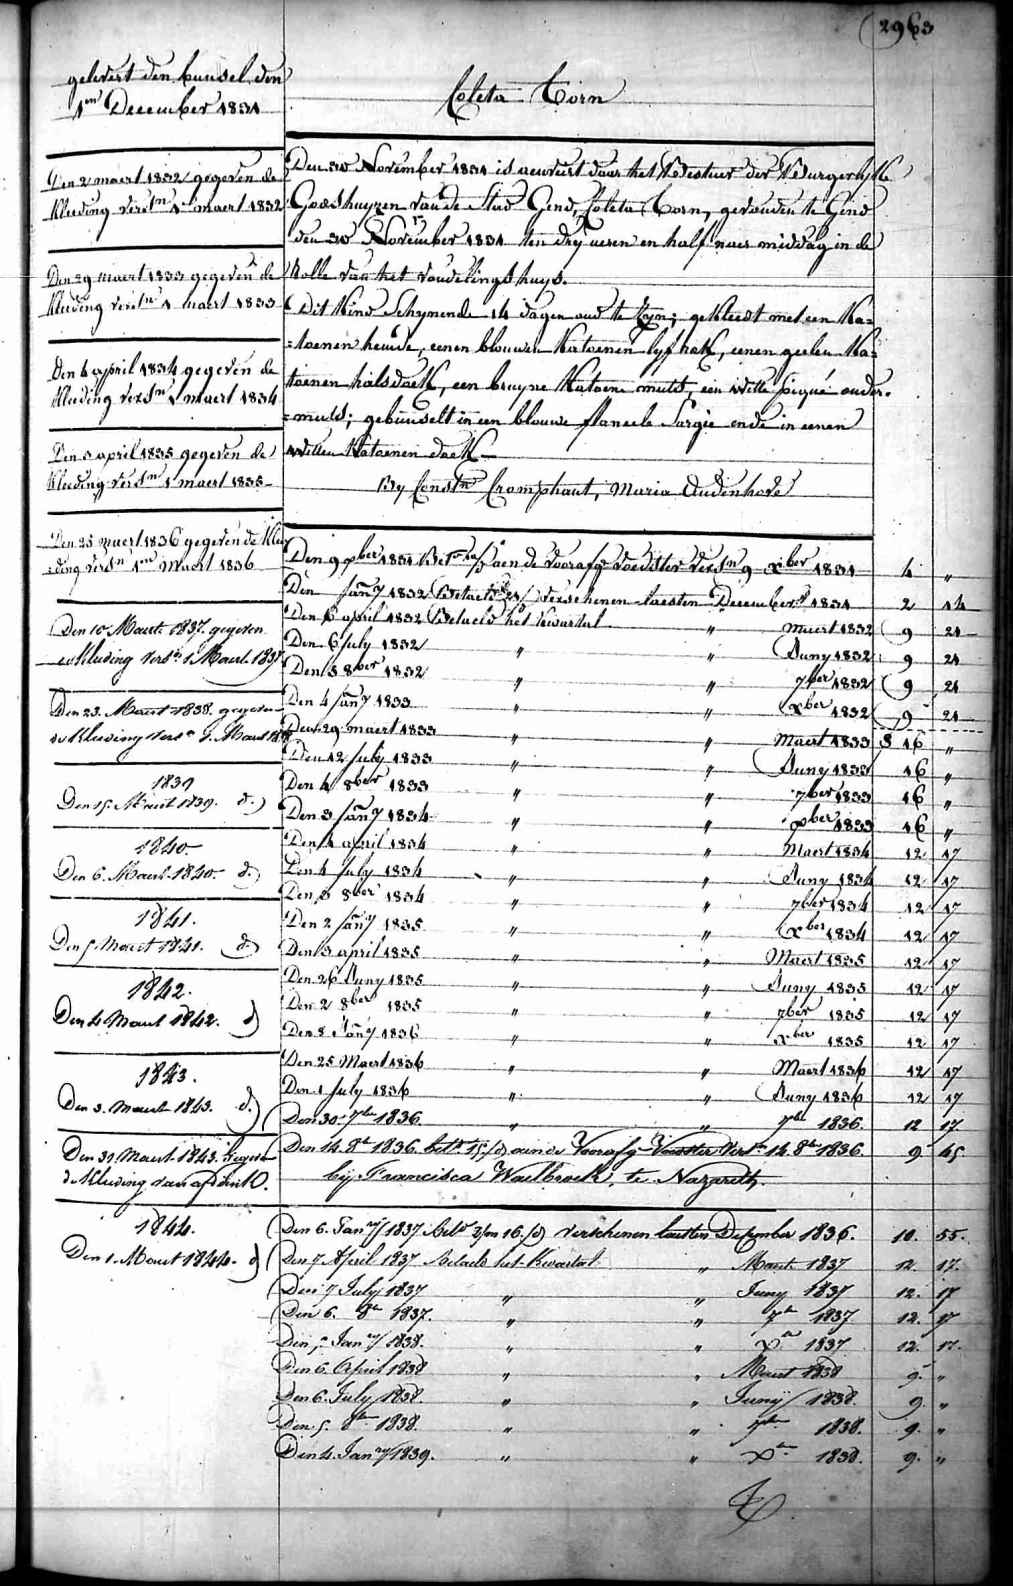 2963
gelevert den bunsel den
1en December 1831
Coleta Corn
Den 2 maert 1832 gegeven de
kleeding versn 1 maert 1832
Den 29 maert 1833 gegeven de
kleeding versn 1 maert 1833
Den 6 april 1834 gegeven de
kleeding versn 1 maert 1834
Den 3 april 1835 gegeven de
kleeding versn 1 maert 1835
Den 25 maert 1836 gegeven de klee
=ding versn 1en Maert 1836
Den 10 Maert 1837 gegeven
kleeding versn 1 Maert 1837
Den 23. Maert 1838. gegeven
de kleeding versn 1. Maert 1838
1839
Den 15. Maert 1839. d.)
1840
Den 6. Maert 1840. d.)
1841.
Den 5 Maert 1841. d.)
1842.
Den 4 Maert 1842. d)
1843.
Den 3. Maert 1843. d.)
Den 30. Maert 1843. gegeven
de kleeding van
1844.
Den 1. Maert 1844. d)
Den 30 November 1831 is aenveert door het Bestier der Burgerlyke
Godshuyzen van de Stad Gend, Coleta Corn, gevonden te Gend
den 30 November 1831 ten dry ueren en half naer middag in de
Rolle van het vondelingshuys.
Dit Kind Schynende 14 dagen oud te Zyn; gekleed met een Ka=
=toenen hemde, eenen blouwen Katoenen lyfrok, eenen geelen Ka=
toenen halsdoek, een bruyne Katoene muts, een witte piqué onder=
=muts; gebunselt in een blouwe flaneele Sargie ende in eenen
witten Katoenen doek
By Constn Cromphaut, Maria Audenhove
Den 9 xber 1831 Bet aen de voorafg voedster versn 9 xber 1831 4 "
Den Jany 1832 Betaelt verschenen laesten December 1831 2 14
Den 6 april 1832 Betaeld het Kwartael " Maert 1832 9 21
Den 6 July 1832 " " Juny 1832 9 21
Den 5 8ber 1832 " " 7ber 1832 9 21
Den 4 Jany 1833 " " xber 1832 9 21
Den 29 maert 1833 " " Maert 1833 16 "
Den 12 July 1833 " " Juny 1833 16 "
Den 4 8ber 1833 " " 7ber 1833 16 "
Den 3 Jany 1834 " " xber 1833 16 "
Den 4 april 1834 " " Maert 1834 12 17
Den 4 July 1834 " " Juny 1834 12 17
Den 3 8ber 1834 " " 7ber 1834 12 17
Den 2 Jany 1835 " " xber 1834 12 17
Den 3 april 1835 " " Maert 1835 12 17
Den 26 Juny 1835 " " Juny 1835 12 17
Den 2 8ber 1835 " " 7ber 1835 12 17
Den 8 Jany 1836 " " xber 1835 12 17
Den 25 Maert 1836 " " Maert 1836 12 17
Den 1 July 1836 " " Juny 1836 12 17
Den 30 7ber 1836 " " 7ber 1836 12 17
Den 14. 8r 1836. bet aen de Voorafg Voester versn 14. 8r 1836. 9 45
bij Francisca Waelbroeck, te Nazareth.
Den 6. Janry 1837 Bet verschenen laetsten December 1836. 10. 55.
Den 7 April 1837 Betaeld het Kwartael " Maert 1837 12. 17.
Den 7 July 1837 " " Juny 1837 12. 17
Den 6. 8r 1837. " " 7r 1837 12. 17
Den 5 Janry 1838. " " Xr 1837 12. 17.
Den 6. April 1838 " " Maert 1838 9. "
Den 6. July 1838. " " Junij 1838. 9. "
Den 5. 8r 1838. " " 7r 1838. 9. "
Den 4. Janry 1839. " " Xr 1838. 9. "